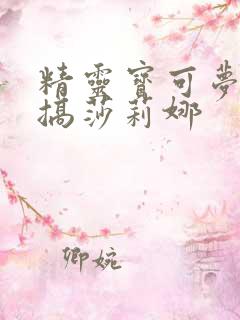 精靈寶可夢
搞莎莉娜
卿婉